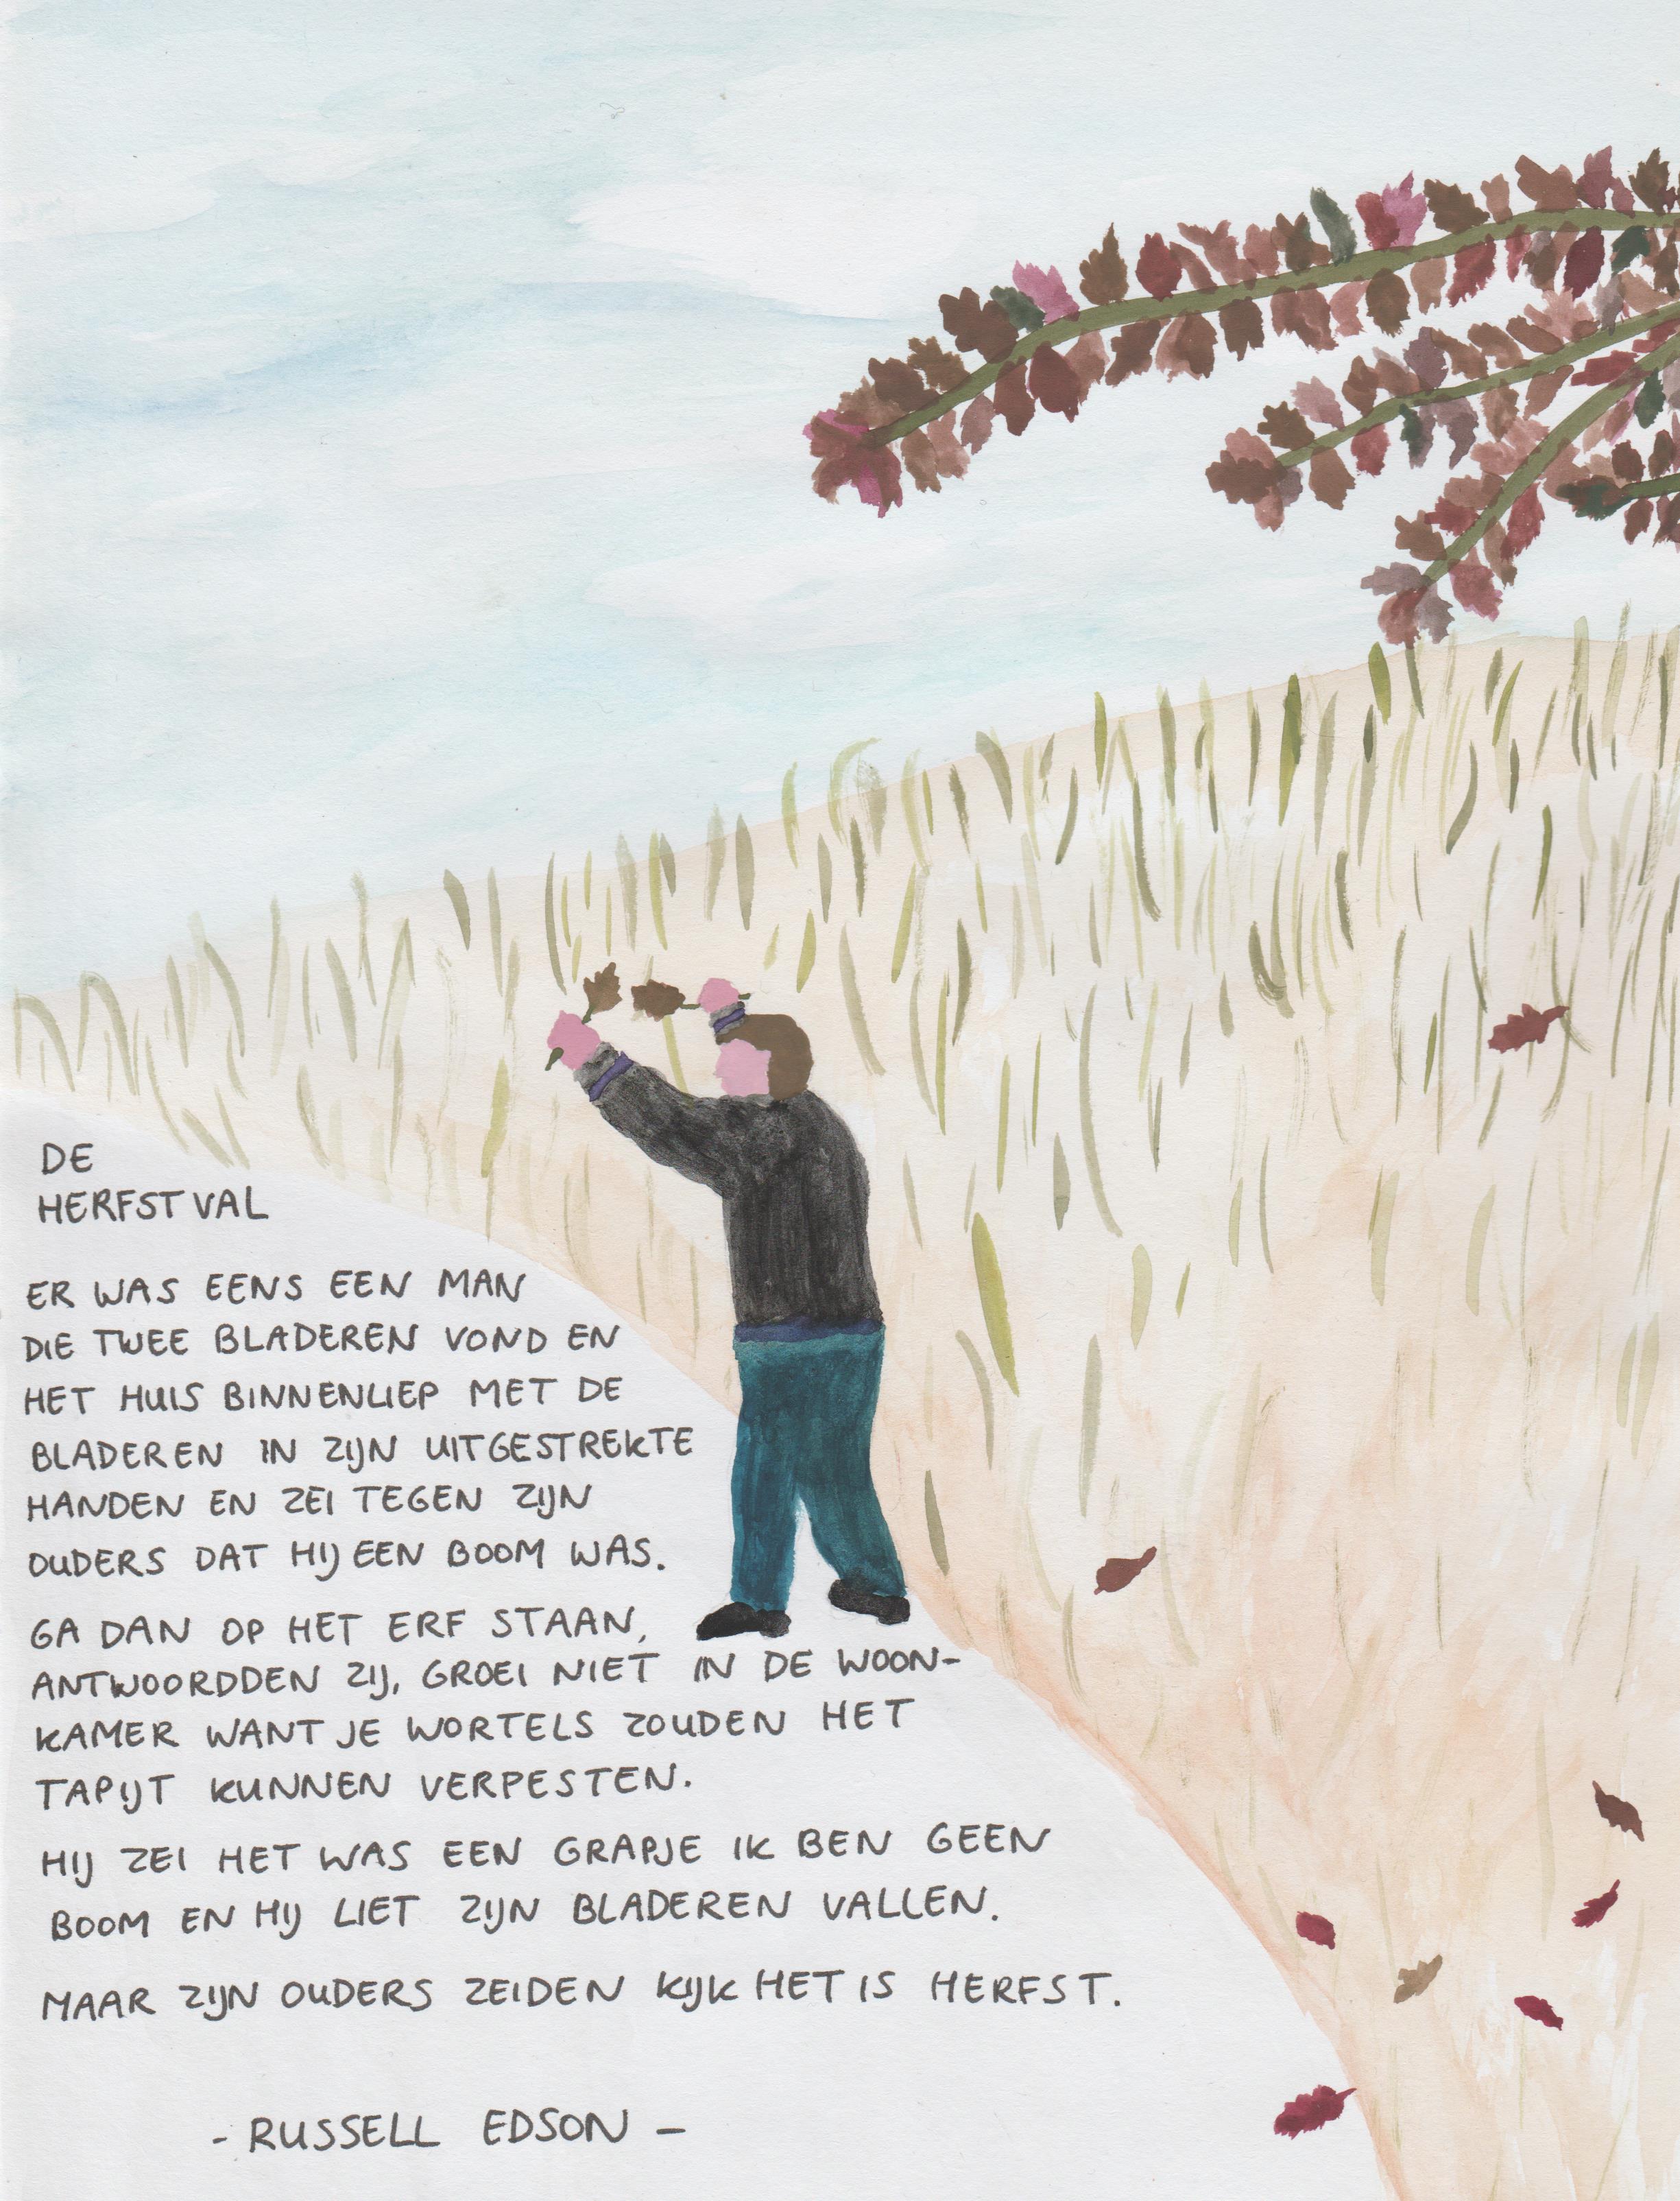 DE
HERFSTVAL
ER WAS EENS EEN MAN
DIE TWEE BLADEREN VOND EN
HET HUIS BINNENLIEP MET DE
BLADEREN IN ZIJN UITGESTREKTE
HANDEN EN ZEI TEGEN ZIJN
OUDERS DAT HIJ EEN BOOM WAS.
GA DAN OP HET ERF STAAN,
ANTWOORDDEN ZIJ, GROEI NIET IN DE WOON-
KAMER WANT JE WORTELS ZOUDEN HET
TAPIJT KUNNEN VERPESTEN.
HIJ ZEI HET WAS EEN GRAPJE IK BEN GEEN
BOOM EN HIJ LIET ZIJN BLADEREN VALLEN.
MAAR ZIJN OUDERS ZEIDEN KIJK HET IS HERFST.
- RUSSELL EDSON -